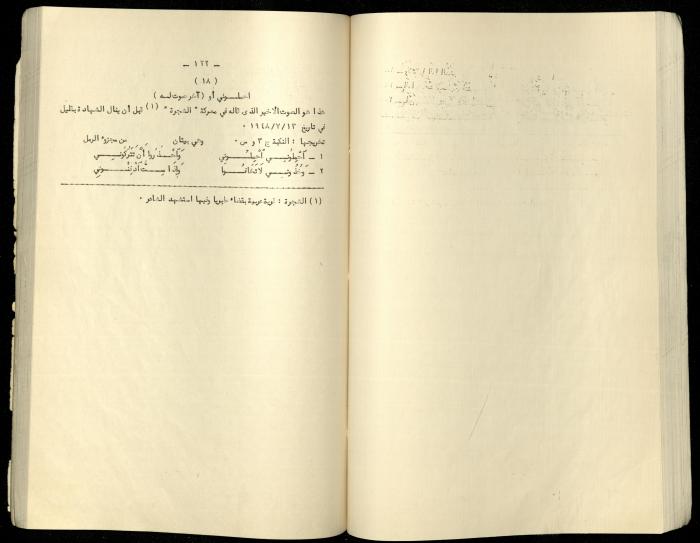 - ١٢٢ -
( ١٨ )
احملـــوني أو ( آخر صوت لــه )
هذا هو الصوت الأخير الذى قاله في معركة " الشجرة " (١) قبل أن ينال الشهادة بقليل
في تاريخ ١٩٤٨/٧/١٣ .
تخريجها : النكبة ج ٣ و س ٠ وهي بيتان من مجزوء الرمل
١ - اَحْمِلُونــي اَحْمِلُــوني وَاَحْــذَرُوا أَنْ تَتْرُكُونــي
٢ - وَخُذُونــي لَا تَخَافُــوا وَإِذَا مِــتُّ اُدْفِنُــوني
(١) الشجرة : قرية عربية بقضاء طبريا وفيها استشهد الشاعر .